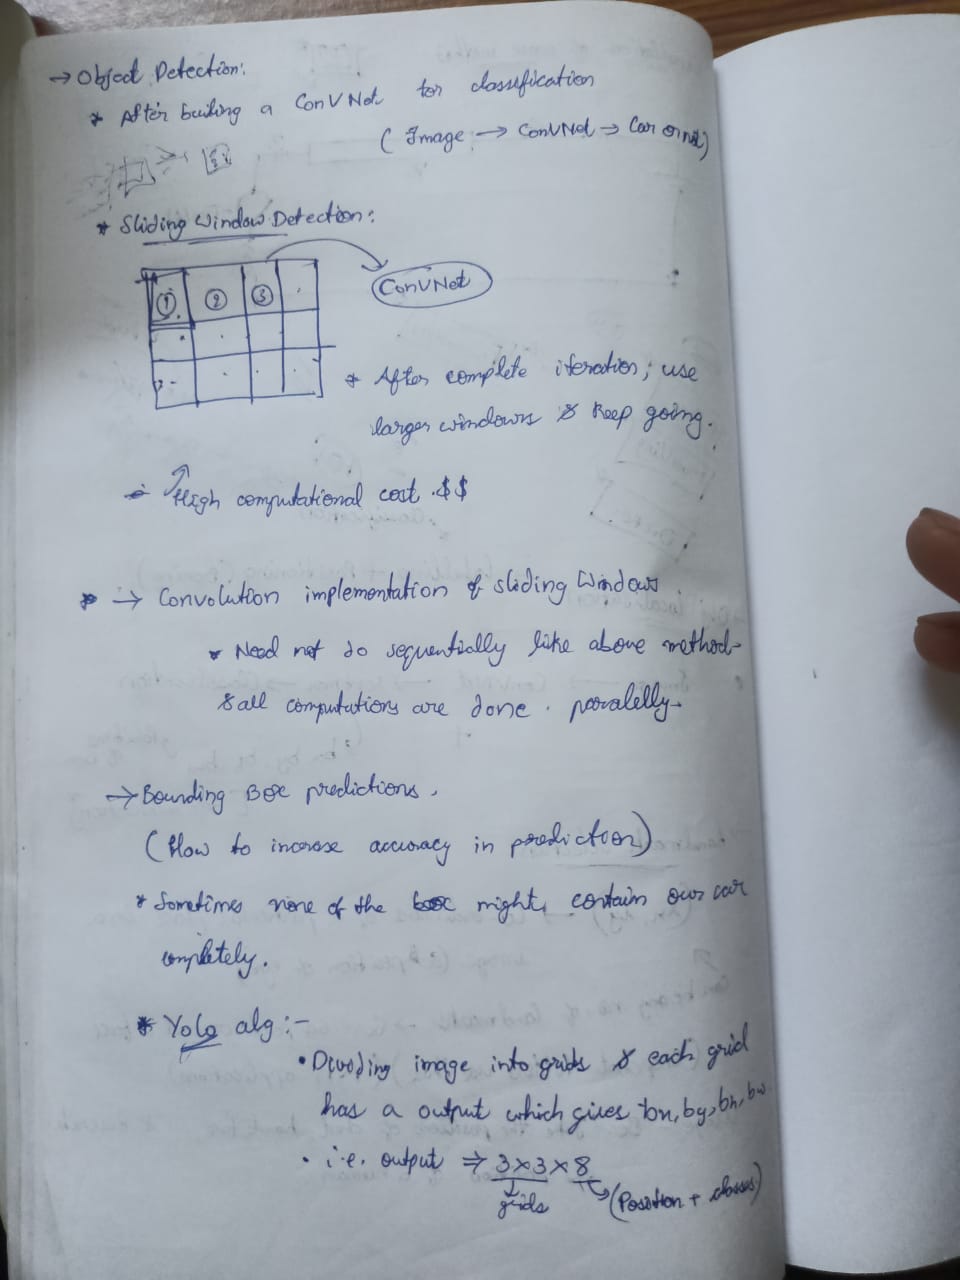 → Object Detection:
* After building a ConVNet for classification
( Image → ConVNet → Car or not)
* Sliding Window Detection:
① ② ③
ConVNet
* After complete iteration; use
larger windows & keep going.
High computational cost .$$
* → Convolution implementation of sliding Window
* Need not do sequentially like above method
& all computations are done. paralelly
→ Bounding Box predictions.
(How to increase accuracy in prediction)
* Sometimes none of the box might contain our car
completely.
* Yolo alg:-
• Dividing image into grids & each grid
has a output which gives bn, by, bh, bw
• i.e. output ⇒ 3x3x8
grids
(Position + classes)